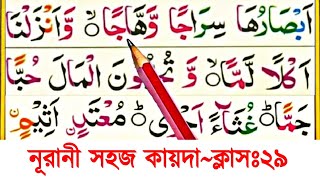 اَبْصَارُهَا سِرَاجًا وَّهَّاجًا ۙ وَّاَنْزَلْنَا
اَكْلًا لَّمًّا ۙ وَّتُحِبُّوْنَ الْمَالَ حُبًّا
جَمًّا ؕ غُثَآءً اَحْوٰى ؕ مُعْتَدٍ اَثِيْمٍ ۙ
নূরানী সহজ কায়দা~ক্লাসঃ২৯